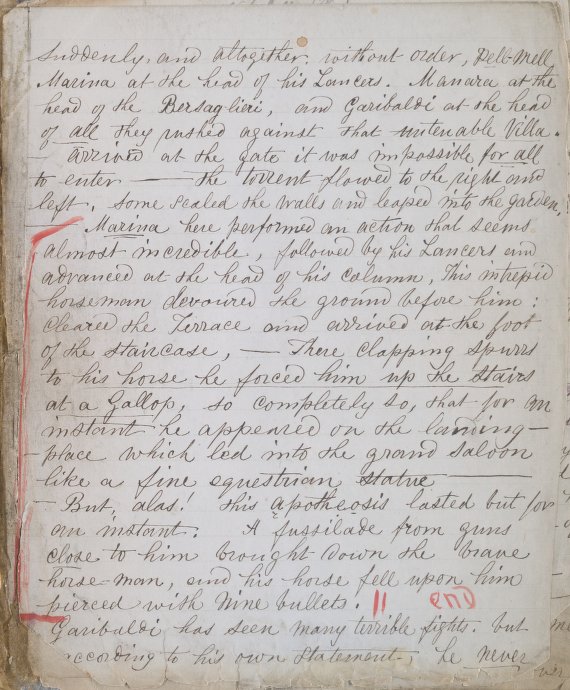 suddenly, and altogether, without order, Pell-Mell
Marina at the head of his Lancers. Manara at the
head of the Bersaglieri, and Garibaldi at the head
of all they rushed against that untenable Villa.
— arrived at the gate it was impossible for all
to enter —— the torrent flowed to the right and
left, some scaled the walls and leaped into the garden,
— Marina here performed an action that seems
almost incredible, followed by his Lancers and
advanced at the head of his column, This intrepid
horseman devoured the ground before him:
Cleared the Terrace and arrived at the foot
of the staircase, — There clapping spurrs
to his horse he forced him up the stairs
at a Gallop, so completely so, that for an
instant he appeared on the landing-
place which led into the grand saloon
like a fine equestrian statue ——
— But, alas! this apotheosis lasted but for
an instant. A fussilade from guns
close to him brought down the brave
horse-man, and his horse fell upon him
pierced with nine bullets. || end
Garibaldi has seen many terrible fights. but
according to his own statement, he never